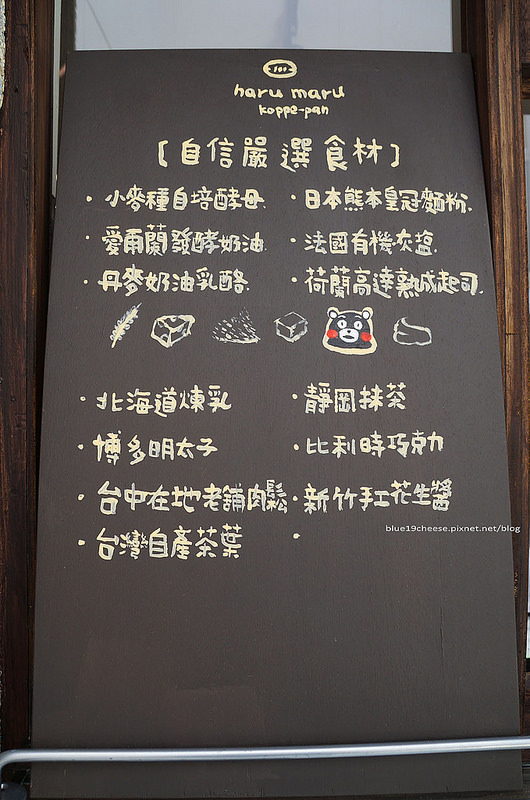 haru maru
koppe-pan
[自信嚴選食材]
· 小麥種自培酵母. · 日本熊本皇冠麵粉.
· 愛爾蘭發酵奶油. · 法國有機灰塩.
· 丹麥奶油乳酪. · 荷蘭高達熟成起司.
· 北海道煉乳 · 靜岡抹茶
· 博多明太子 · 比利時巧克力
· 台中在地老舖肉鬆 · 新竹手工花生醬
· 台灣自產茶葉 ·
blue19cheese.pixnet.net/blog